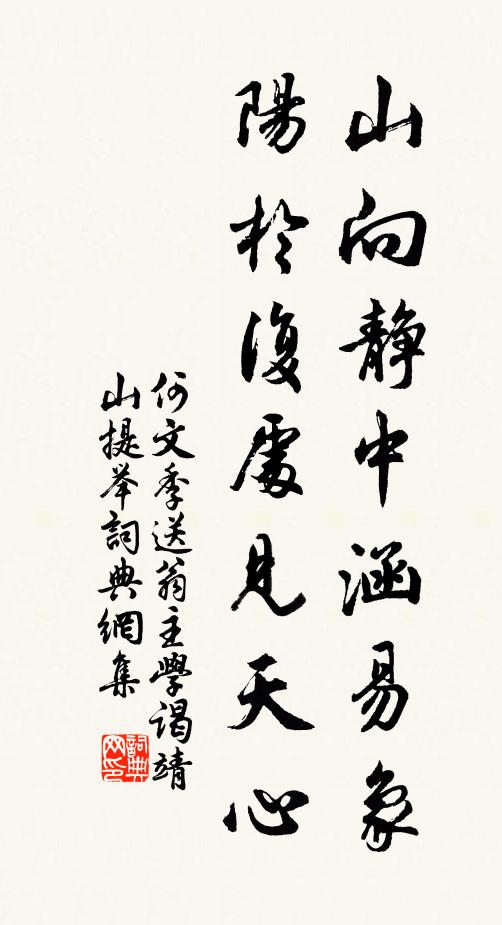 山向靜中涵易象
陽於復處見天心
何文季送翁主學謁靖
山提举詞典網集
詞典網印